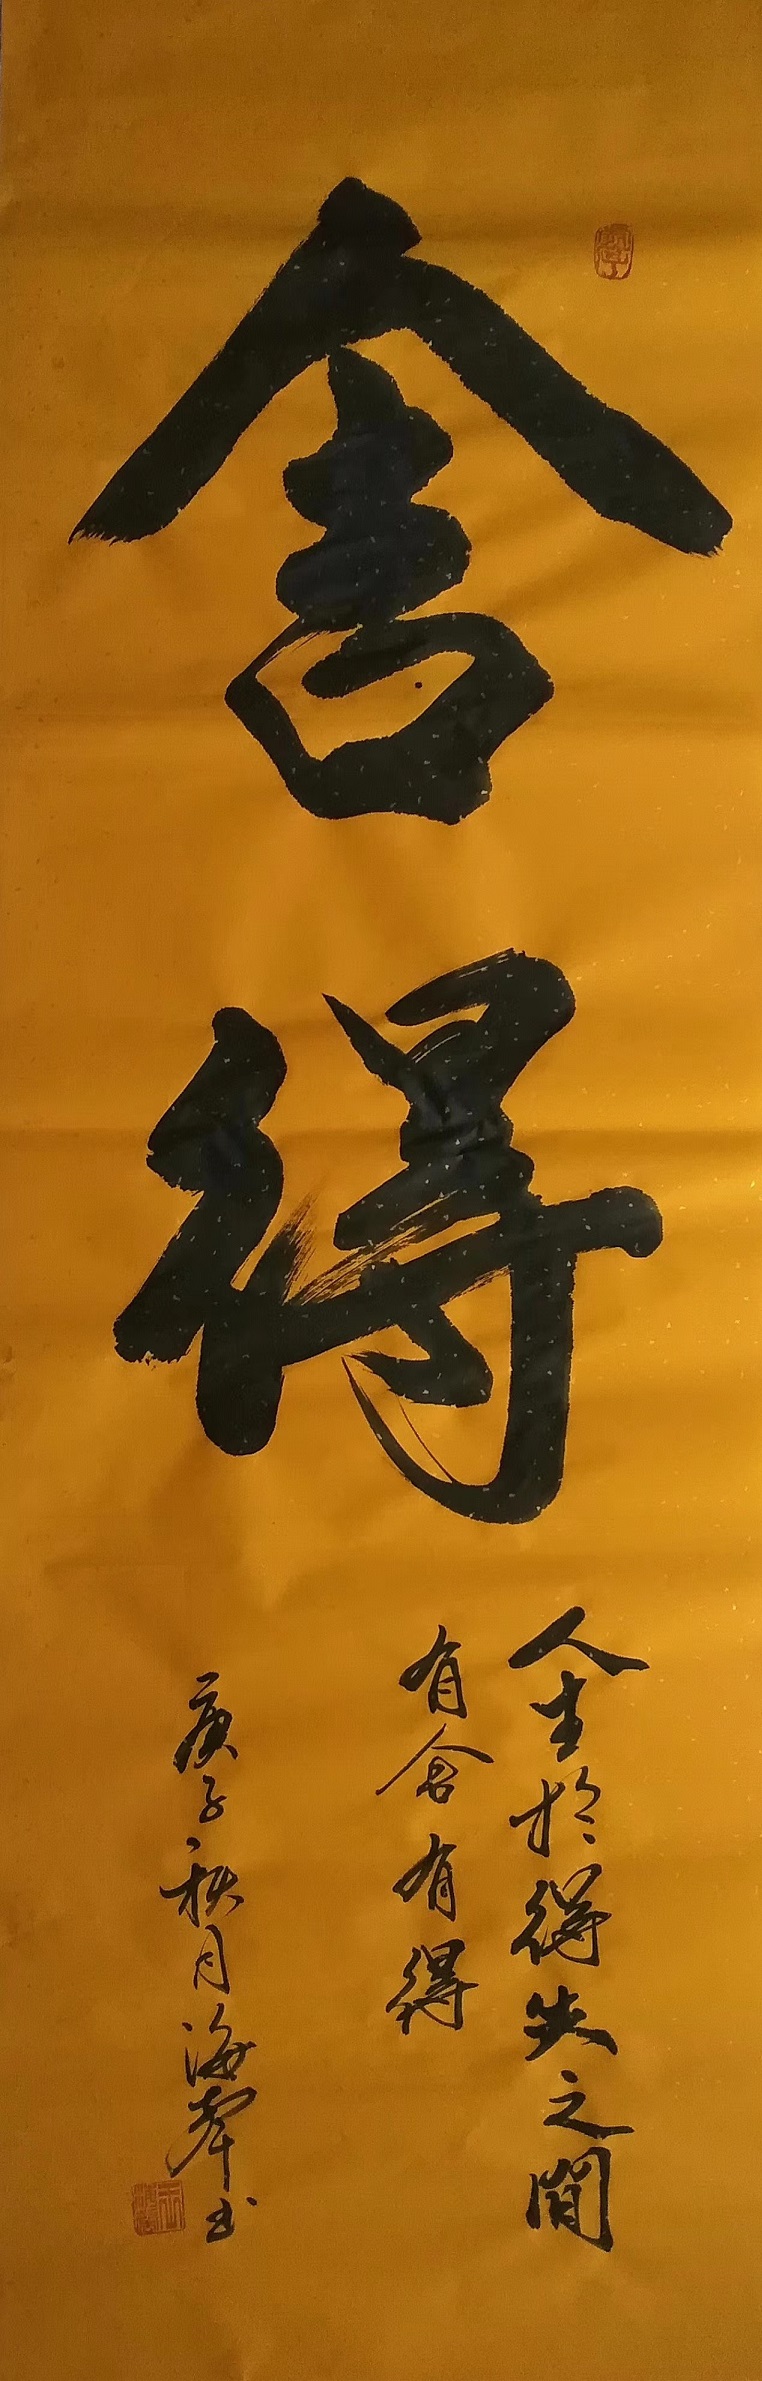 舍得
人生於得失之間
有舍有得
庚子秋月海犂书